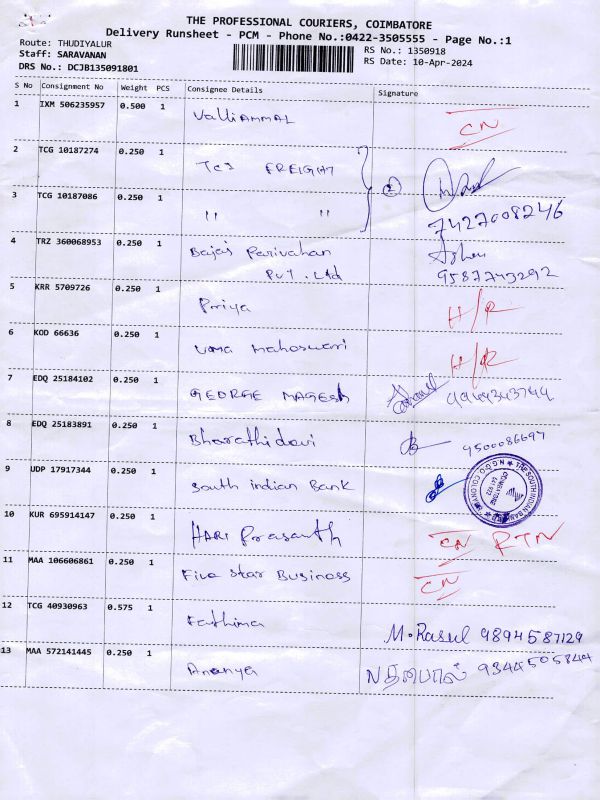 THE PROFESSIONAL COURIERS, COIMBATORE
Delivery Runsheet - PCM - Phone No.:0422-3505555 - Page No.:1
Route: THUDIYALUR
RS No.: 1350918
Staff: SARAVANAN
RS Date: 10-Apr-2024
DRS No.: DCJB135091801
S No Consignment No Weight PCS Consignee Details Signature
1 IXM 506235957 0.500 1 Valliammal CN
2 TCG 10187274 0.250 1 Tcs FREIGHT 2
3 TCG 10187086 0.250 1 " " 7427008246
4 TRZ 360068953 0.250 1 Bajaj Parivahan
Pvt. Ltd 9587743292
5 KRR 5709726 0.250 1 Priya H/R
6 KOD 66636 0.250 1 Uma Mahoswari H/R
7 EDQ 25184102 0.250 1 GEORGE MAGESh 9944343744
8 EDQ 25183891 0.250 1 Bharathidevi 9500086697
9 UDP 17917344 0.250 1 South indian Bank
THE SOUTH INDIAN BANK
10 KUR 695914147 0.250 1 HARI Prasanth CN RTN
11 MAA 106606861 0.250 1 Five Star Business CN
12 TCG 40930963 0.575 1 Fathima M.Rasul 9894587129
13 MAA 572141445 0.250 1 Ananya 9344505844